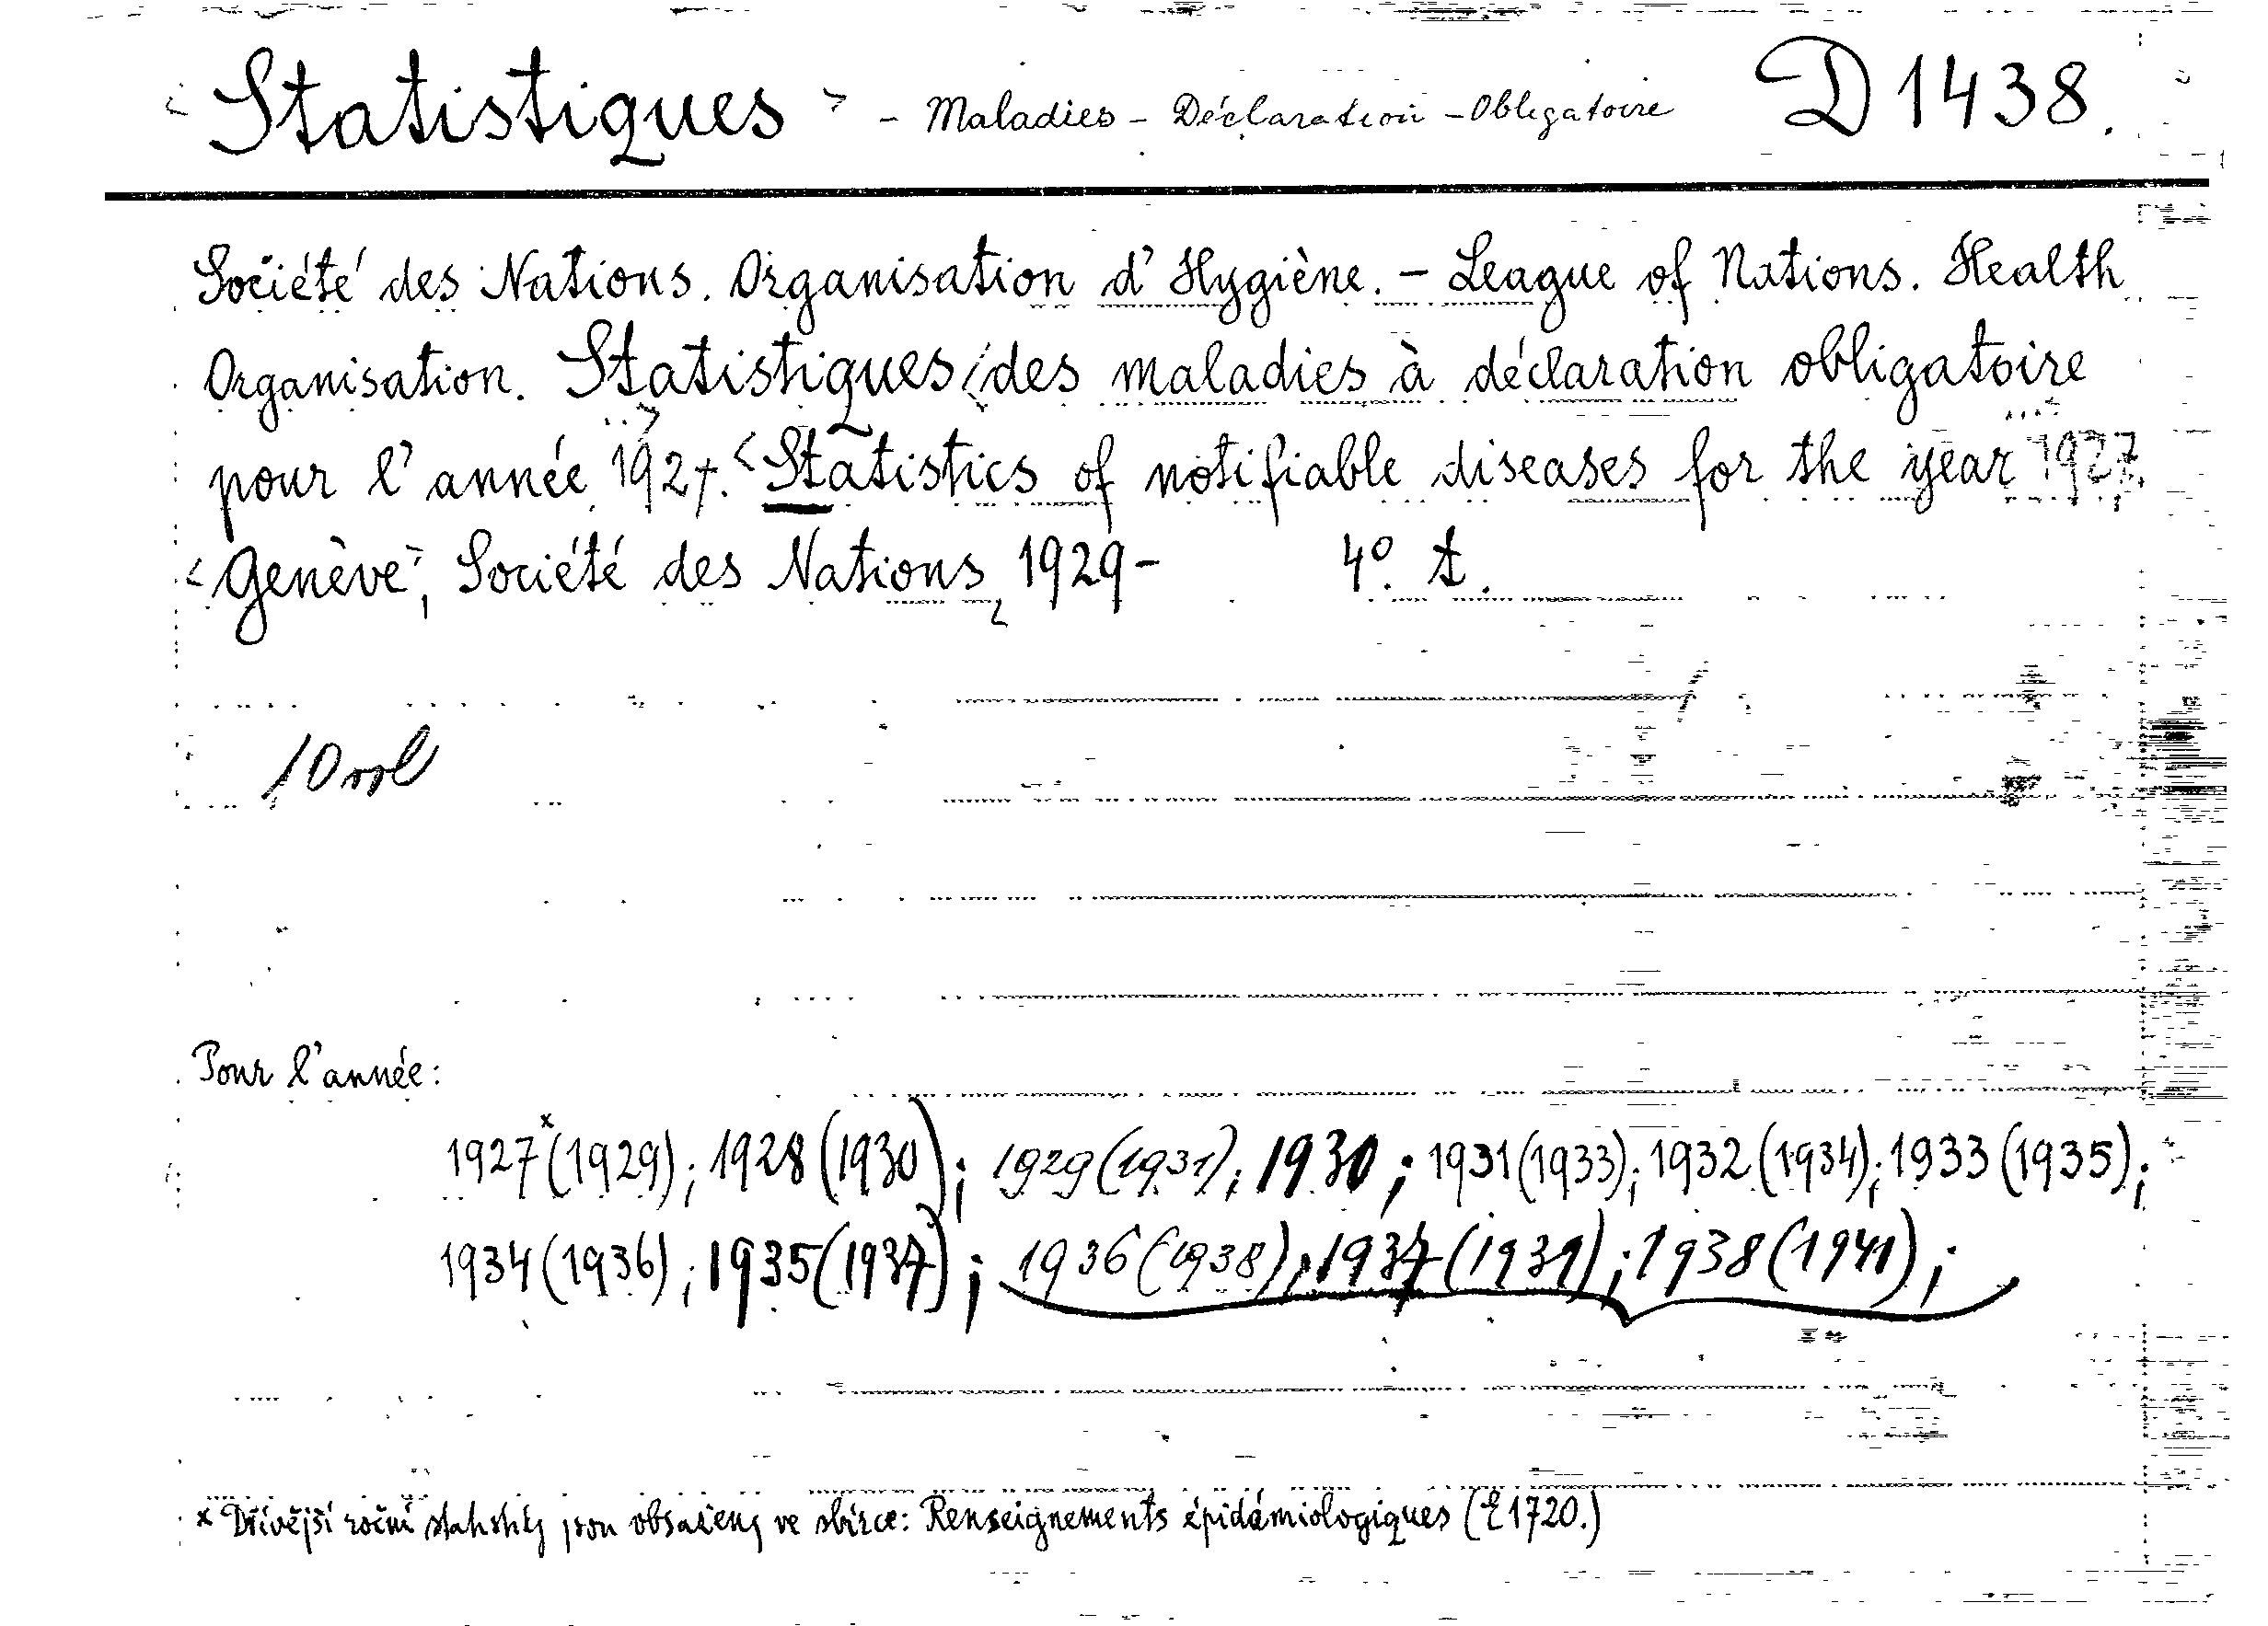 < Statistiques > - Maladies - Déclaration - Obligatoire D 1438.
Société des Nations. Organisation d'Hygiène. – League of Nations. Health
Organisation. Statistiques des maladies à déclaration obligatoire
pour l'année 1927. <Statistics of notifiable diseases for the year 1927.
<Genève>, Société des Nations, 1929- 4º. t.
10 vol
Pour l'année:
1927ˣ (1929); 1928 (1930); 1929 (1931); 1930; 1931 (1933); 1932 (1934); 1933 (1935);
1934 (1936); 1935 (1937); 1936 (1938); 1937 (1939); 1938 (1941);
x Dřívější roční statistiky jsou obsaženy ve sbírce: Renseignements épidémiologiques (E 1720.)